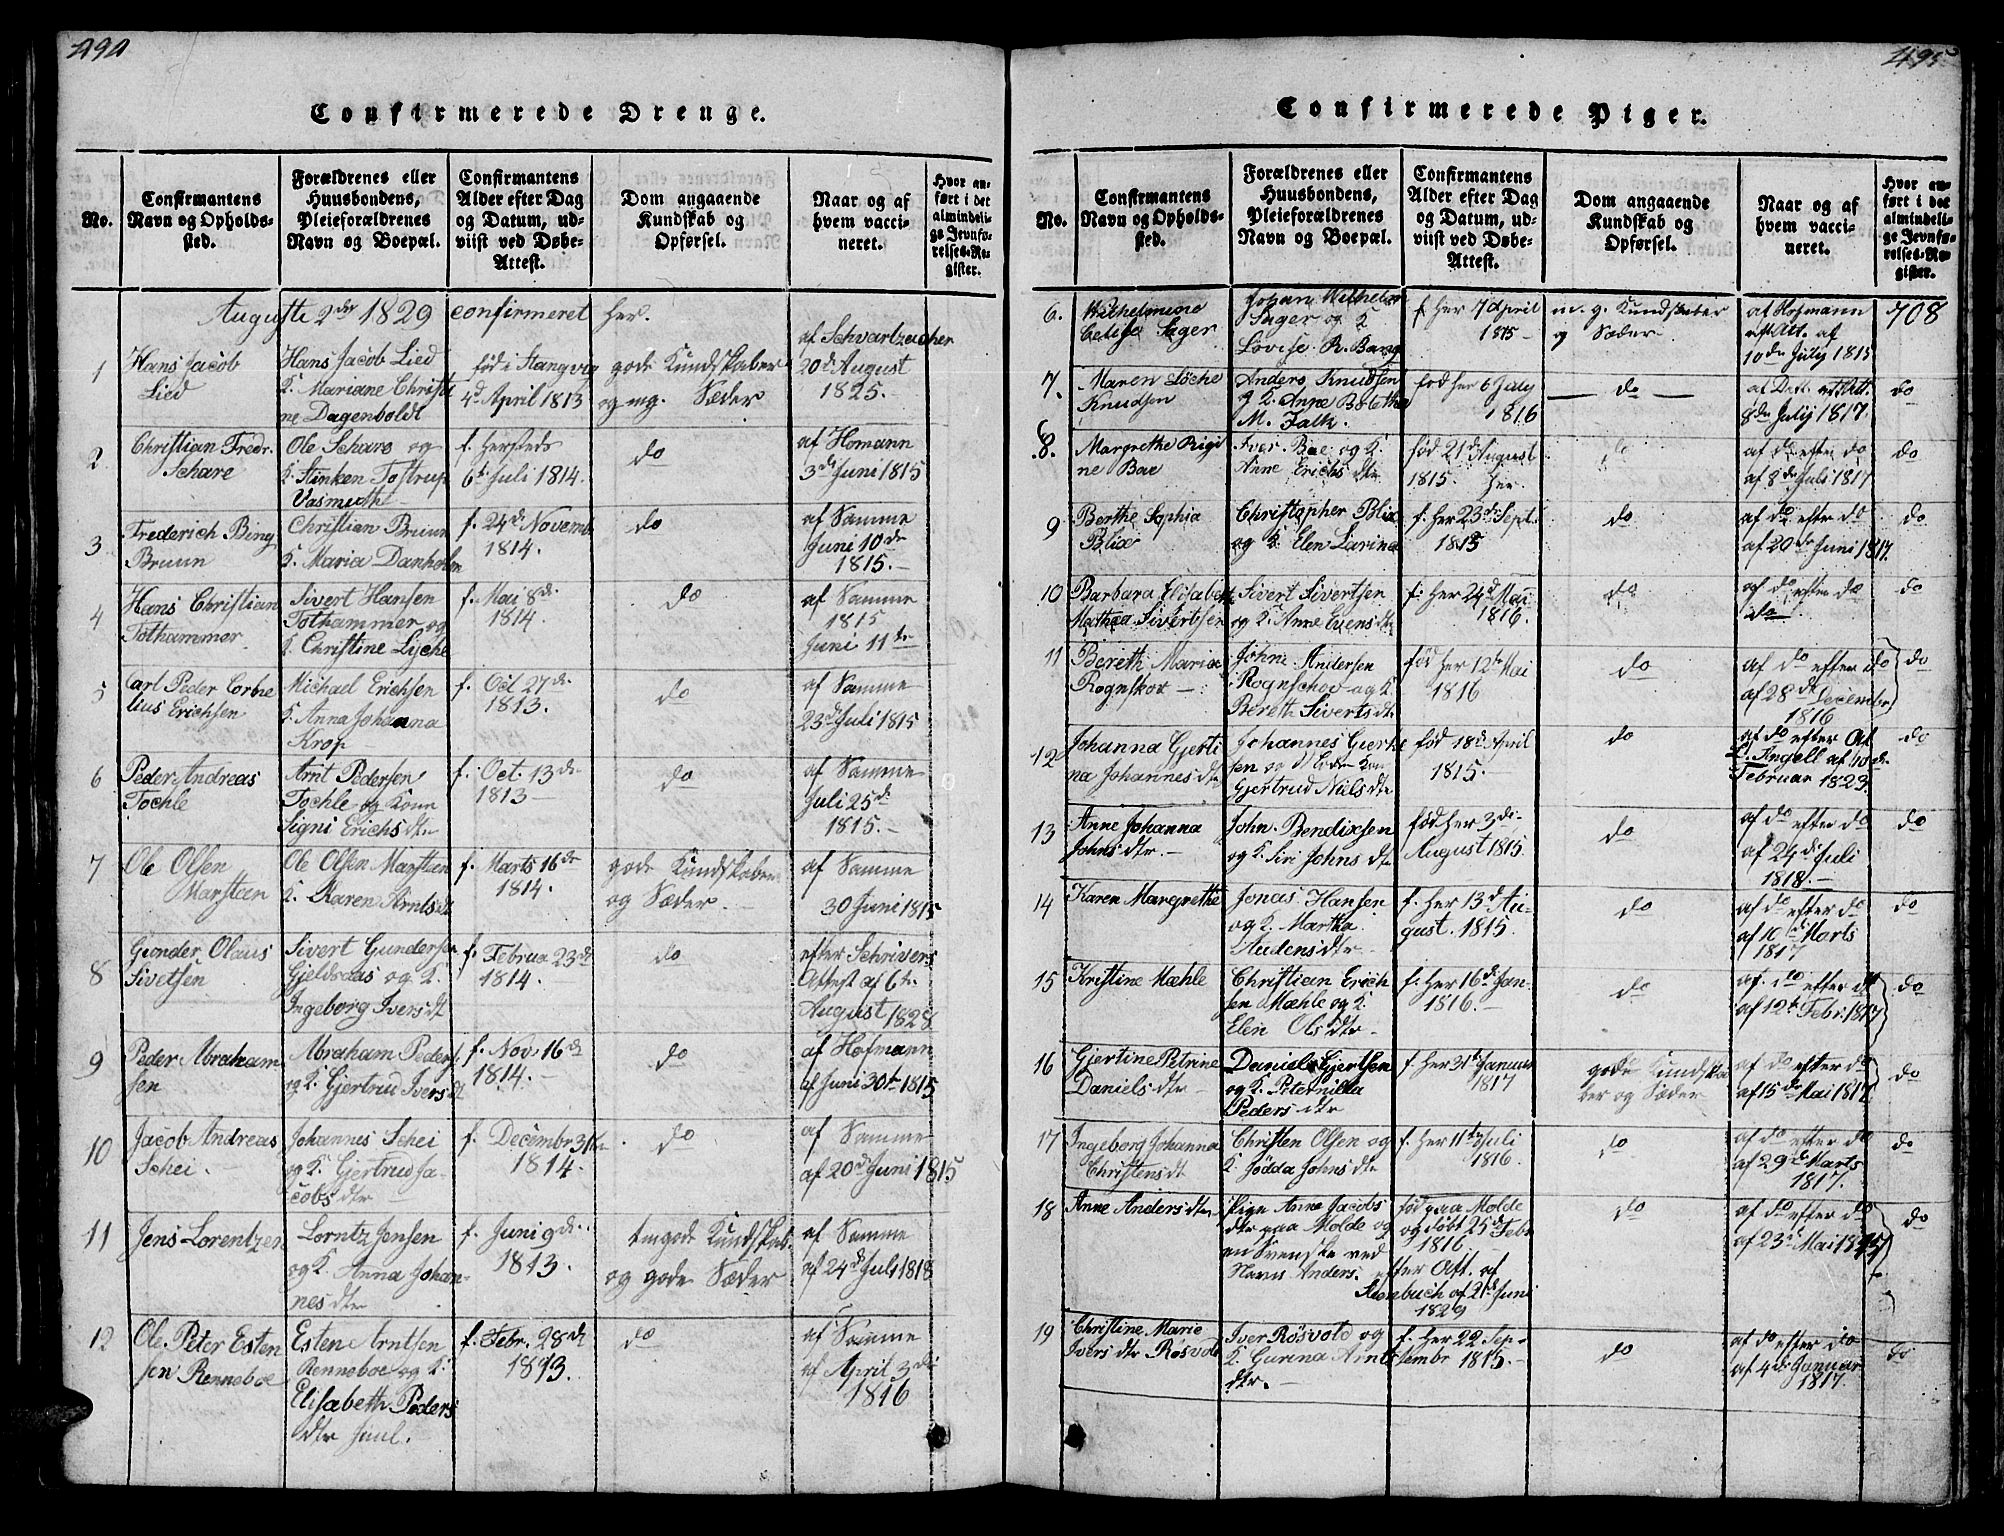 494
Confirmerede Drenge.
No.
Confirmantens
Navn og Opholds-
sted.
Forældrenes eller
Huusbondens,
Pleieforældrenes
Navn og Boepæl.
Confirmantens
Alder efter Dag
og Datum, ud-
viist ved Døbe-
Attest.
Dom angaaende
Kundskab og
Opførsel.
Naar og af
hvem vacci-
neret.
Hvor an-
ført i det
almindeli-
ge Jevnfø-
relses-Re-
gister.
Auguste 2den 1829 confirmeret her.
1
Hans Jacob
Lied
Hans Jacob Lied
K. Mariane Christi
ne Dagenboldt
fød i Stangvig
4d April 1813
gode Kundskaber
og mg. Sæder
af Schvartzeucher
20d August
1825.
2
Christian Fredr.
Schare
Ole Schare og
K. Stinken Tostrup
Vasmuth
f. hersteds
6t Juli 1814.
do
af Homann
3d Juni 1815
3
Frederich Bing
Bruun
Christian Bruun
K. Maria Danholm
f. 24d Novemb.
1814.
do
af Samme
Juni 10de
1815.
4
Hans Christian
Tothammer
Sivert Hansen
Tothammer og
K. Christine Lyche
f. Mai 8de
1814.
do
af Samme
1815
Juni 11te
5
Carl Peder Corne
lius Erichsen
Michael Erichsen
K. Anna Johanna
Krop
f. Oct 27de
1813.
do
af Samme
23d Juli 1815
6
Peder Andreas
Tochle
Arnt Pedersen
Tochle og Kone
Signi Erichs dtr
f. Oct. 13de
1813
do
af Samme
Juli 25de
1815.
7
Ole Olsen
Marstein
Ole Olsen Marstien
K. Karen Arntsdt
f. Marts 16de
1814.
gode Kundskaber
og Sæder.
af Samme
30 Juni 1815
8
Gunder Olaus
Sivetsen
Sivert Gundersen
Gjeldsdas og K.
Ingeborg Ivers dt
f. Februa 23d
1814.
do
efter Schrivers
Attest af 6te
August 1828
9
Peder Abraham
sen
Abraham Peders.
og K. Gjertrud Ivers dt
f. Nov. 16d
1814.
do
af Hofmann
af Juni 30t 1815
10
Jacob Andreas
Schei.
Johannes Schei
og K. Gjertrud Ja-
cobs dtr
f. Decembr 31te
1814.
do
af Samme
af 20d Juni 1815
11
Jens Lorentzen
Lorntz Jensen
og K. Anna Johan-
nes dtr
f. Juni 9de
1813.
tmgode Kundskab.
og gode Sæder
af Samme
af 24d Juli 1818
12
Ole Peter Esten
sen Renneboe
Esten Arntsen
Renneboe og K.
Elisabeth Peders
dtr Juul.
f. Febr. 28d
1813.
do
af Samme
af April 3die
1816
495
Confirmerede Piger.
No.
Confirmantens
Navn og Opholds-
sted.
Forældrenes eller
Huusbondens,
Pleieforældrenes
Navn og Boepæl.
Confirmantens
Alder efter Dag
og Datum, ud-
viist ved Døbe-
Attest.
Dom angaaende
Kundskab og
Opførsel.
Naar og af
hvem vacci-
neret.
Hvor an-
ført i det
almindeli-
ge Jevnfø-
relses-Re-
gister.
6.
Wilhelmine
Sager
Johan Wilhelm
Sager og K
Lovise R. Bang
f. her 7 April
1815
m. g. Kundskaber
og Sæder
af Hofmann
eft Att. af
10de July 1815
708
7.
Maren Løche
Knudsen
Anders Knudsen
og K. Anne
M. Falk.
fød her 6 July
1816
do
8de July 1817.
do
8.
Margrethe Rigi
ne Boe
Iver Boe og K.
Anne Erichs dtr
fød 21d August
1815. her
do
af do efter do
af 8de Juli 1817
do
9
Berthe Sophia
Blix
Christopher Blix
og K. Elen Larina
f. her 23d Sept.
1815
do
af do efter do
af 20de Juni 1817.
do
10
Barbara Elisabeth
Mathea Sivertsen
Sivert Sivertsen
og K. Anne Evensdtr
f: her 24d Mai
1816.
do
af do efter do
do
do
11
Bereth Maria
Rognskov
John Andersen
Rognschov og K.
Bereth Siverts dtr
fød her 12te Mai
1816
do
af do efter do
af 28de Decembr
1816
do
12
Johanna Gjerti
na Johannes dtr
Johannes Gjert
sen og
Gjertrud Niels dtr
fød 18d April
1815.
do
af do efter At.
Lt. Angell af 10de
Februar 1823.
do
13
Anne Johanna
Johns dtr.
John. Bendixsen
og K. Siri Johns dtr
fød her 3de
August 1815.
do
af do efter do
af 24d Juli
1818.
do
14
Karen Margrethe
Jonas Hansen
og K. Martha
Audens dtr
f. her 13d Au-
gust. 1815.
do
af do efter do
af 10d Marts
1817
do
15
Kristine Mæhle
Christian Erich
sen Mæhle og K.
Elen Ols dtr
f. her 16d Jan-
1816.
do
af do efter do
af 12t Febr. 1817
do
16
Gjertine Petrine
Daniels dtr
Daniel Gjertsen
og K. Peternilla
Peders dtr
f. her 31t Januar
1817
gode Kundska
ber og Sæder
af do efter do
af 15de Mai 1817
do
17
Ingeborg Johanna
Christens dt
Christen Olsen og
K. Jødda Johns dtr
f. her 11te Juli
1816.
do
af do efter do
af 29de Marts
1817.
do
18
Anne Anders dtr
Pige Anne Jacobs
dtr paa Molde og
en Svenske ved
Navn Anders.
fød paa Molde
og døbt 25d Febr
1816
efter Att. af
Stenbuch af 21d Juni
1829
do
af do efter do
af 23d Mai
do
19
Christine Marie
Ivers dtr Røsvold
Iver Røsvold og
K. Gurina Arnts
dtr.
f. her 22 Sep-
tembr 1815.
do
af do efter do
af 4de Januar
1817.
do